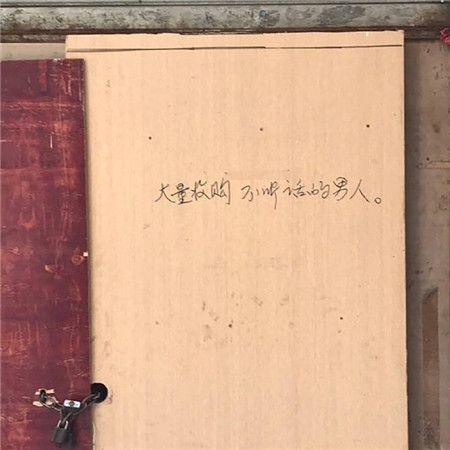 大量收购 不听话的男人。